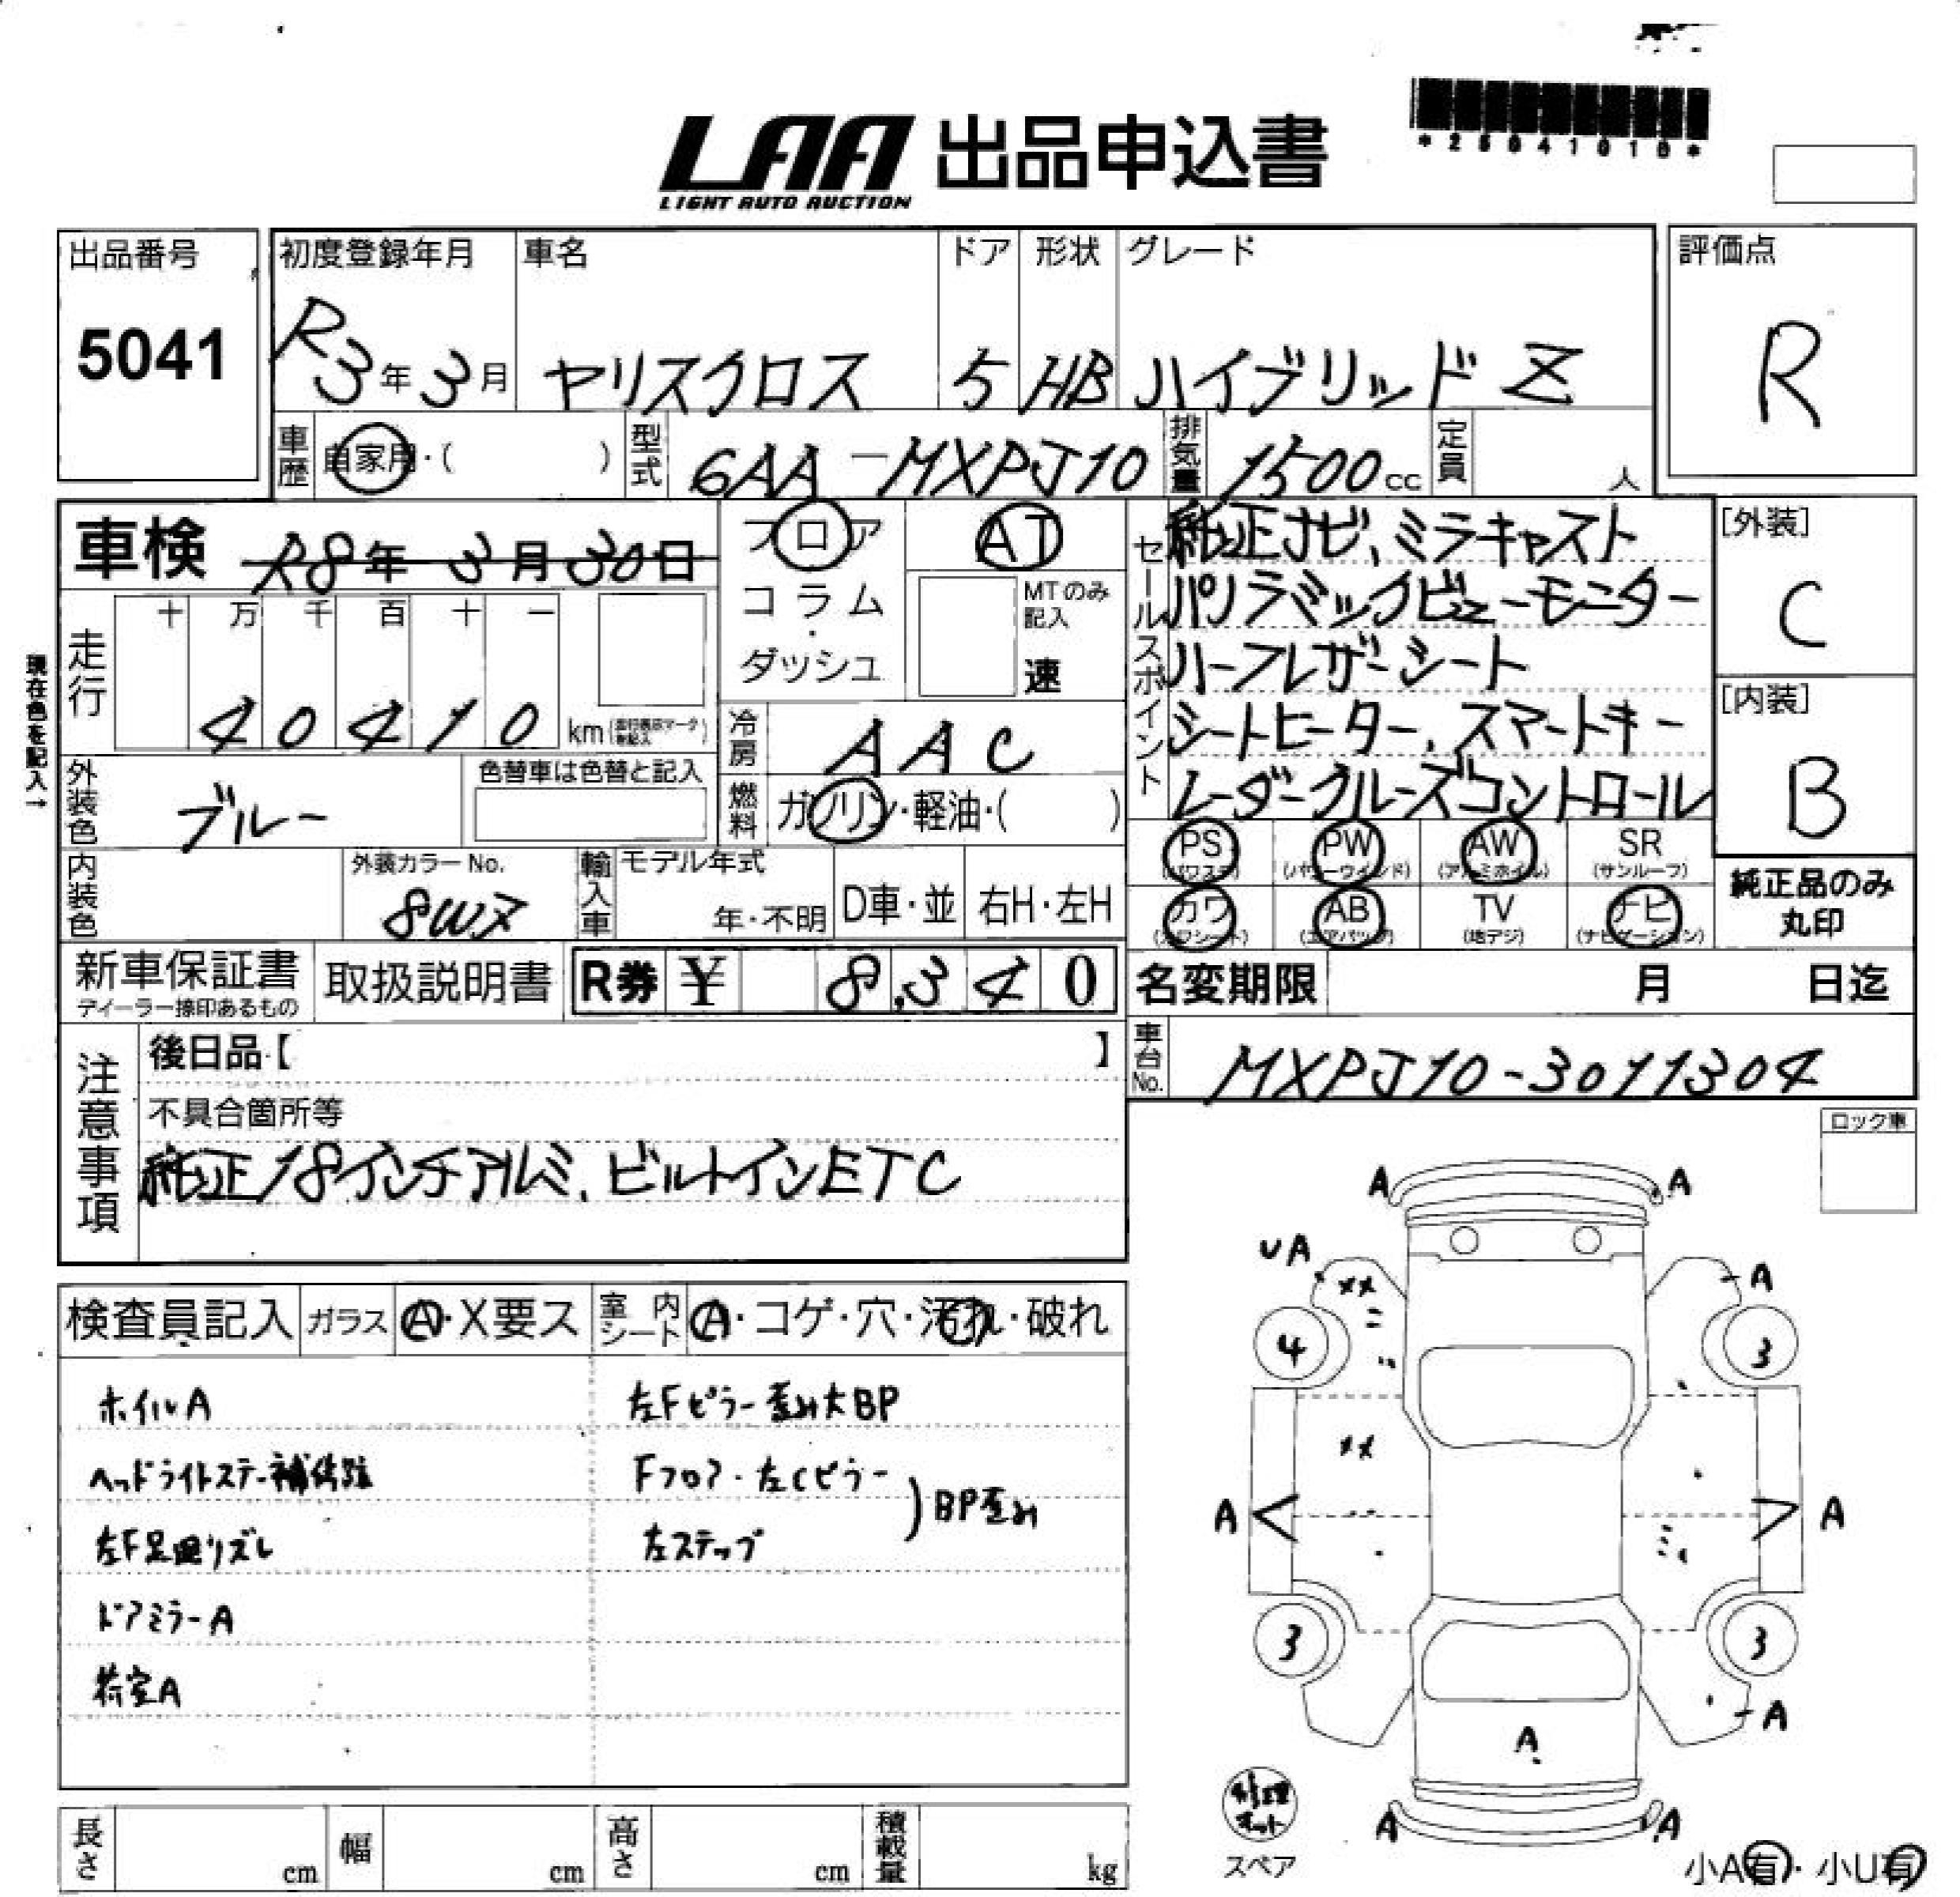 *25041010*
LAA 出品申込書
LIGHT AUTO AUCTION
出品番号
5041
初度登録年月
R3年3月
車名
ヤリスクロス
ドア
5
形状
HB
グレード
ハイブリッド Z
評価点
R
車歴
自家用・( )
型式
6AA-MXPJ10
排気量
1500cc
定員
人
車検 R8年3月30日
フロア
コラム
・
ダッシュ
AT
MTのみ
記入
速
セールスポイント
純正ナビ、ミラキャスト
パノラミックビューモニター
ハーフレザーシート
シートヒーター、スマートキー
レーダークルーズコントロール
[外装]
C
[内装]
B
現在色を記入→
走行
十 万 千 百 十 一
4 0 4 1 0 km
冷房
AAC
外装色
ブルー
色替車は色替と記入
燃料
ガソリン・軽油・( )
PS
(パワステ)
PW
(パワーウインド)
AW
(アルミホイル)
SR
(サンルーフ)
カワ
(カワシート)
AB
(エアバッグ)
TV
(地デジ)
ナビ
(ナビゲーション)
純正品のみ
丸印
内装色
外装カラー No.
8W7
輸入車
モデル年式
年・不明
D車・並
右H・左H
新車保証書
ディーラー捺印あるもの
取扱説明書
R券 ¥ 8,340
名変期限 月 日迄
車台No.
MXPJ10-3011304
注意事項
後日品【 】
不具合箇所等
純正18インチアルミ、ビルトインETC
ロック車
検査員記入
ガラス
A・X要ス
室内シート
A・コゲ・穴・汚れ・破れ
ホイルA
ヘッドライトステー補修跡
左F足廻りズレ
ドアミラーA
荷室A
左Fピラー歪み大BP
Fフロア・左Cピラー
左ステップ
BP歪み
A A
UA
XX
A
4 3
XX
A A
3 3
A
A
A A
修理
キット
スペア
小A有・小U有
長さ
cm
幅
cm
高さ
cm
積載量
kg